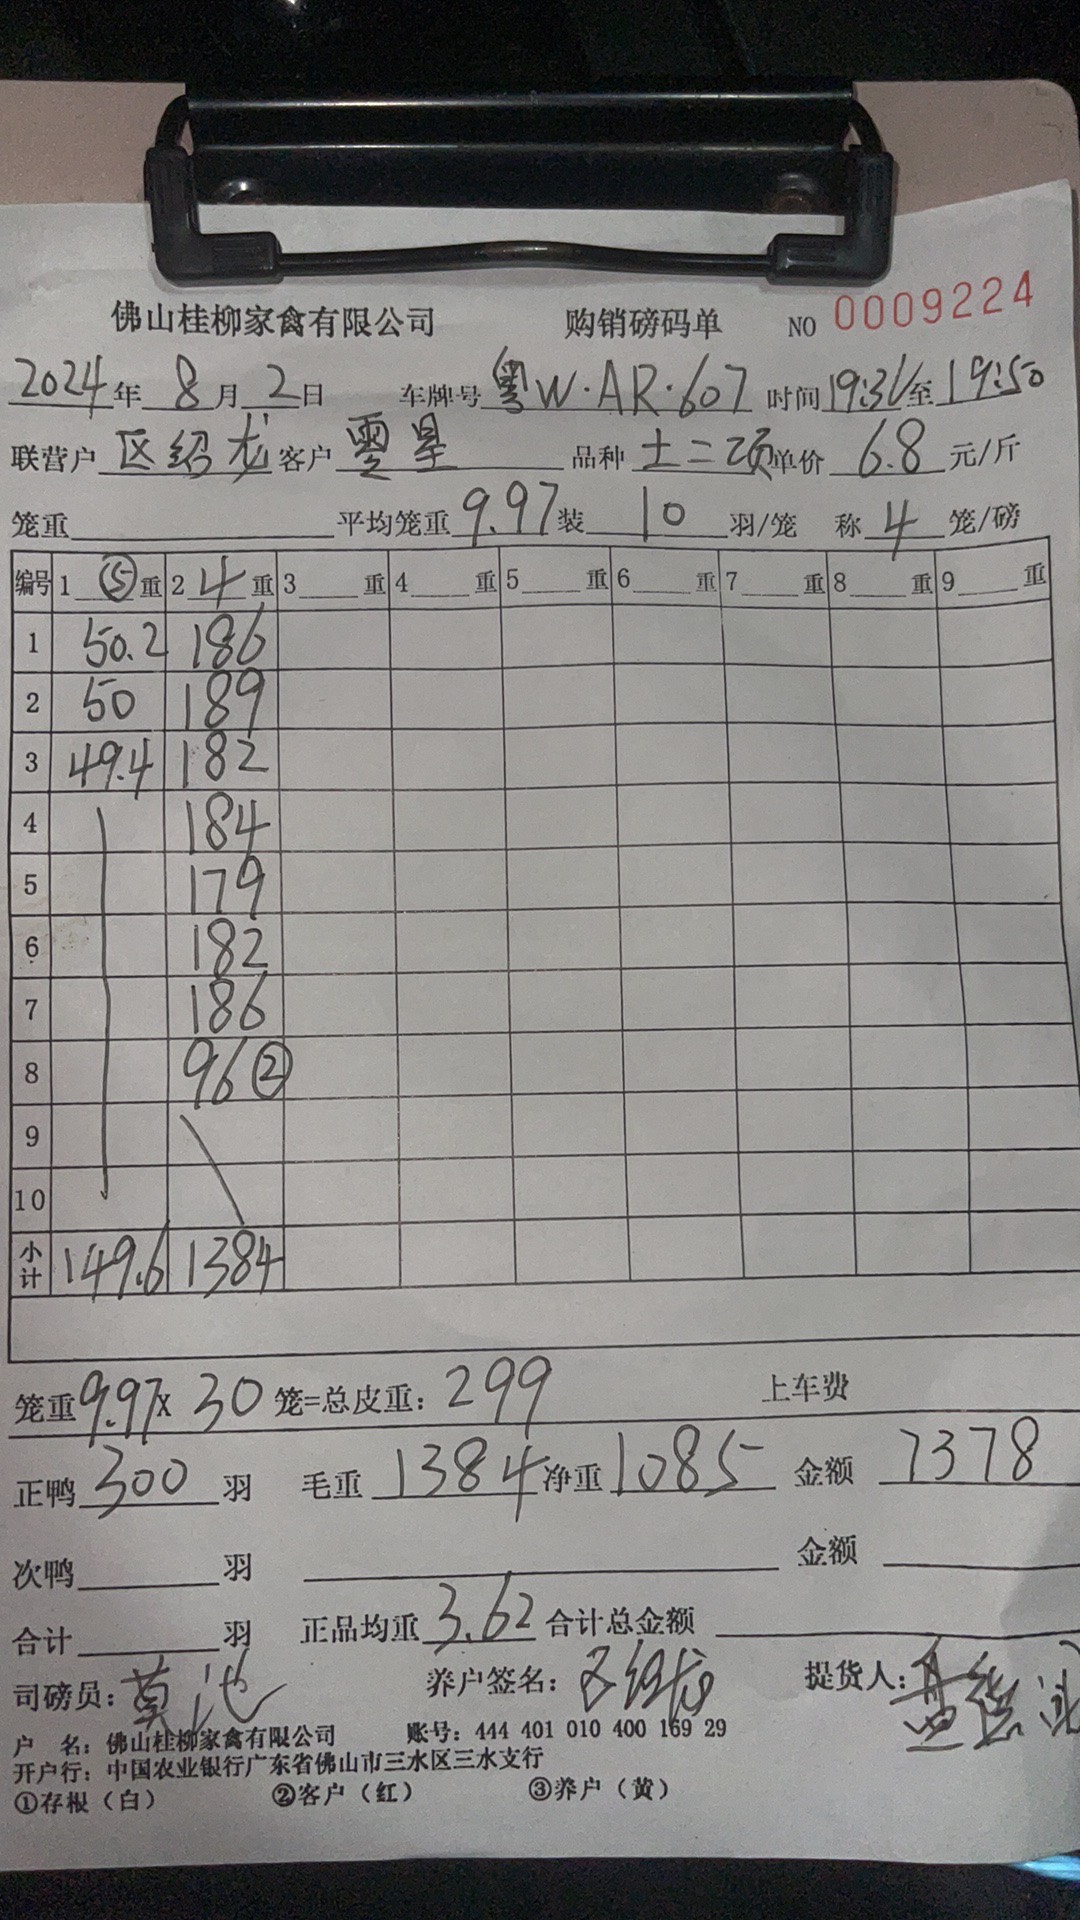 佛山桂柳家禽有限公司 购销磅码单 NO 0009224
2024年 8月 2日 车牌号 粤W·AR·607 时间 19:31至 19:50
联营户 区绍龙 客户 品种 土二项 单价 6.8 元/斤
笼重 平均笼重 9.97 装 10 羽/笼 称 4 笼/磅
编号 1 ⑤ 重 2 4 重 3 重 4 重 5 重 6 重 7 重 8 重 9 重
1 50.2 186
2 50 189
3 49.4 182
4 184
5 179
6 182
7 186
8 96 ②
9
10
小计 149.6 1384
笼重 9.97 x 30 笼=总皮重: 299 上车费
正鸭 300 羽 毛重 1384 净重 1085 金额 7378
次鸭 羽 金额
合计 羽 正品均重 3.62 合计总金额
司磅员: 莫 养户签名: 区绍龙 提货人:
户 名: 佛山桂柳家禽有限公司 账号: 444 401 010 400 169 29
开户行: 中国农业银行广东省佛山市三水区三水支行
①存根（白） ②客户（红） ③养户（黄）